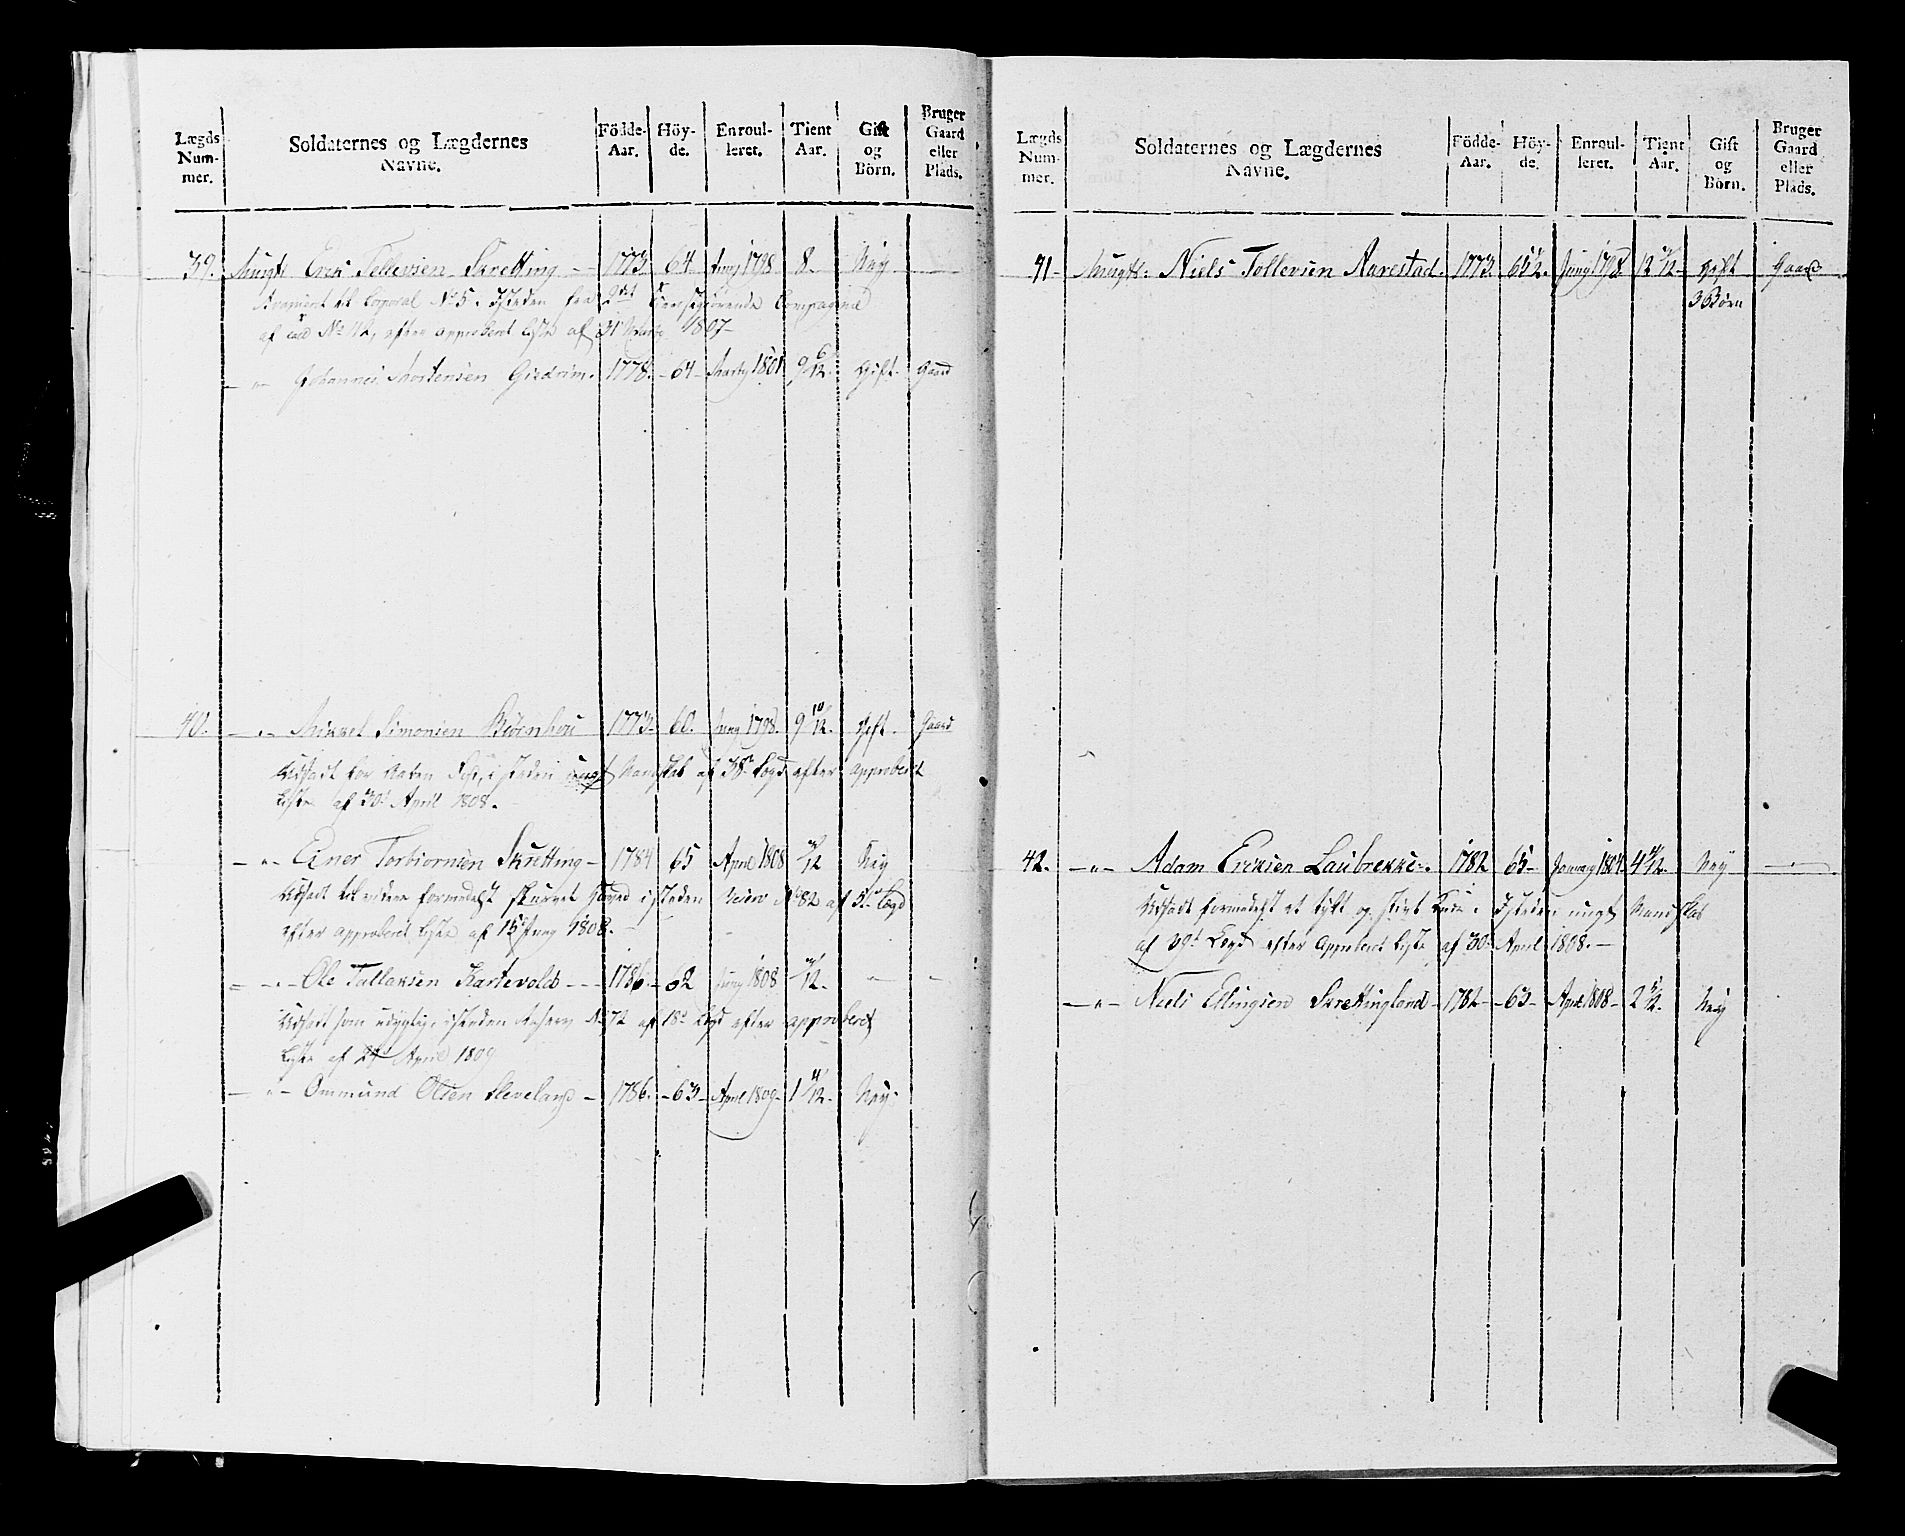 Lægds Num- mer. Soldaternes og Lægdernes Navne. Födde- Aar. Höy- de. Enroul- leret. Tient Aar. Gift og Börn. Bruger Gaard eller Plads.
39. Musqt: Erek Tollevsen Skretting 1773. 64 Juny 1798 8. Ney
Avanceret til Corporal No 5. Isteden fra 2det Compagnie
af No 112, efter approberet Liste af 31 1807
" Johannes Mortensen Giedrim. 1778. 64 Marty 1801 9 6/12. Gift. Gaard
40. " Mikkel Simonsen 1773. 60. Juny 1798. 9 10/12. Gift. Gaard
Udsadt for isteden ungt Mandskab af 38te Legd efter approberet
Liste af 30t April 1808.
" Einer Torbiornsen Skretting 1784 65 April 1808 /12 Ney
Udsadt formedelst skurvet Hoved isteden No 82 af 5te Legd
efter approberet Liste af 15t Juny 1808.
" Ole Tallaksen Kartevold 1786. 62 Juny 1808 /12. "
Udsadt som udygtig, isteden No 72 af 18de Legd efter approberet
Liste af 24t April 1809
" Ommund Olsen Kleveland 1786. 63 April 1809 1 11/12. Ney
Lægds Num- mer. Soldaternes og Lægdernes Navne. Födde- Aar. Höy- de. Enroul- leret. Tient Aar. Gift og Börn. Bruger Gaard eller Plads.
41. Musqt: Niels Tollevsen Aarestad. 1773. 65 1/2. Juny 1798 12 /12 Gift Gaard
3 Börn
42. " Adam Ereksen Laubrekke 1782 65 January 1804. 4 /12. Ney "
Udsadt formedelst et tykt og stivt Knæ. Isteden ungt Mandskab
af 39t Legd efter Approberet Liste af 30t April 1808.
" Niels Ellingsen Skrettingland 1782 63 April 1808 2 /12. Ney